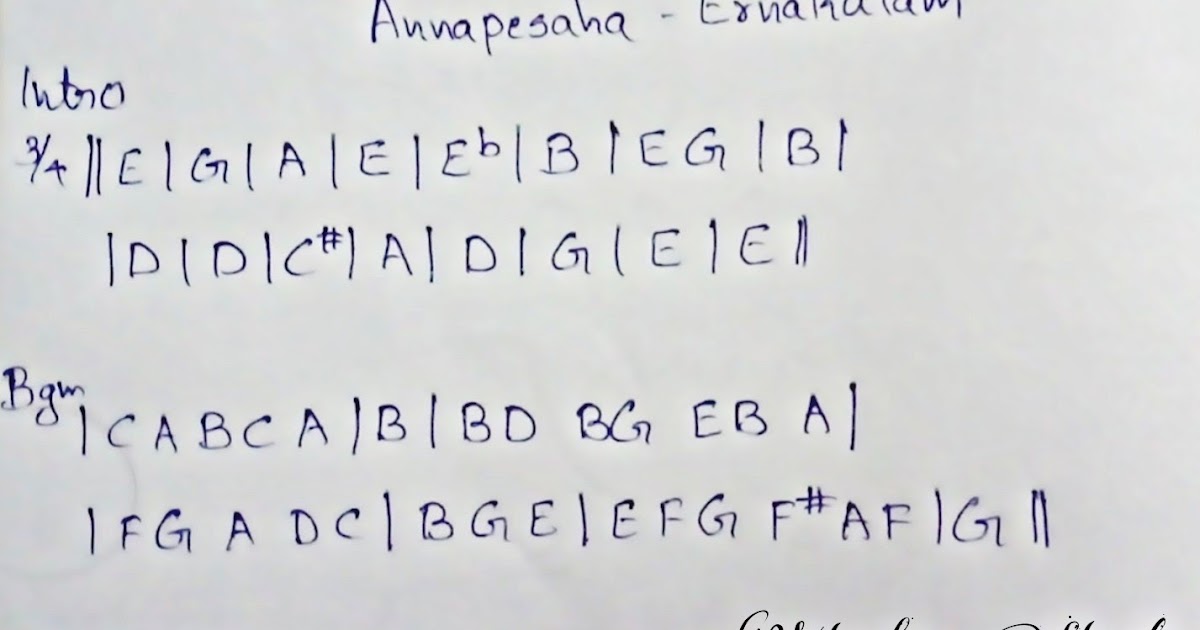 Annapesaha - Ernakulam
Intro
3/4 || E | G | A | E | Eb | B | E G | B |
| D | D | C# | A | D | G | E | E ||
Bgm | C A B C A | B | B D B G E B A |
| F G A D C | B G E | E F G F# A F | G ||